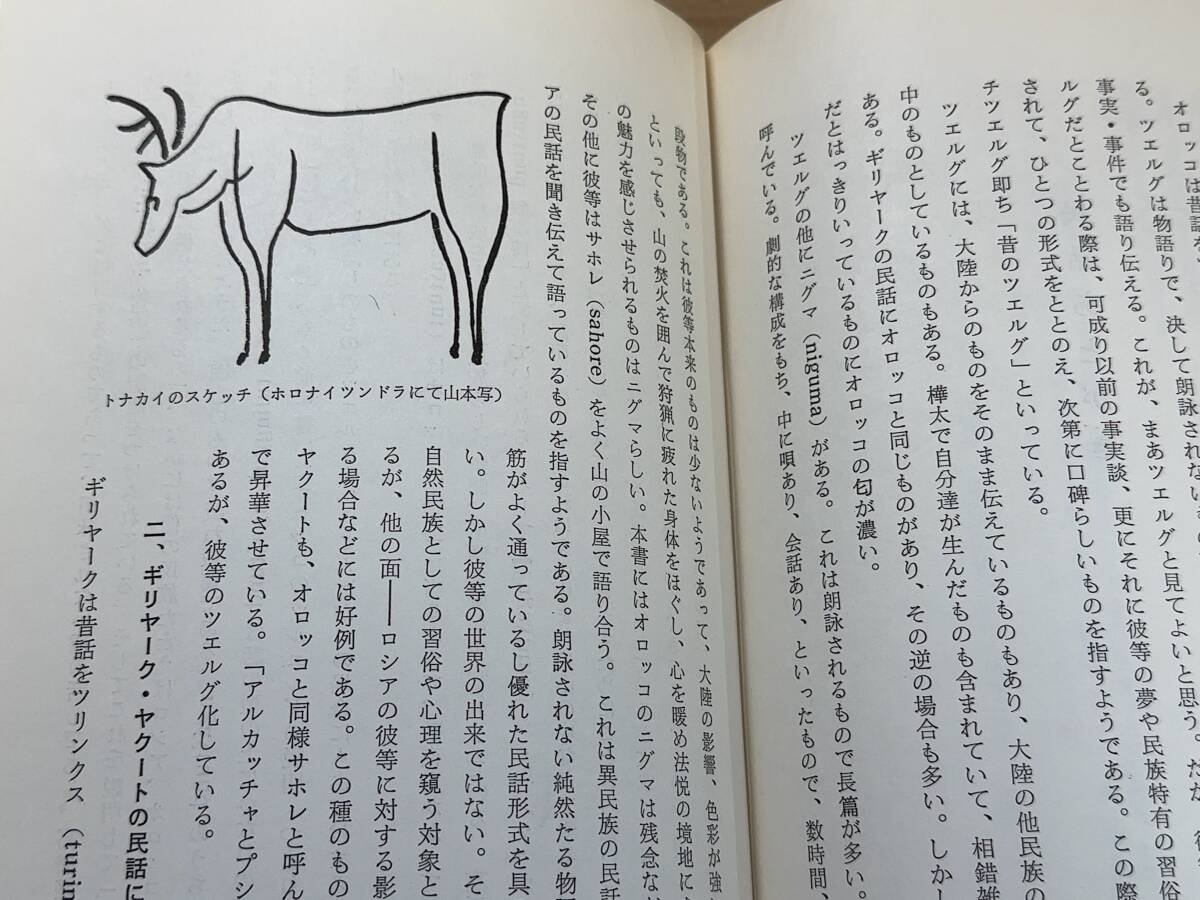 オロッコは昔話を
る。ツエルグは物語りで、決して朗詠されないもの
事実・事件でも語り伝える。これが、まあツエルグと見てよいと思う。だが、
ルグだとことわる際は、可成り以前の事実談、更にそれに彼等の夢や民族特有の習俗
されて、ひとつの形式をととのえ、次第に口碑らしいものを指すようである。この際
チツエルグ即ち「昔のツエルグ」といっている。
ツエルグには、大陸からのものをそのまま伝えているものもあり、大陸の他民族の
中のものとしているものもある。樺太で自分達が生んだものも含まれていて、相錯雑
ある。ギリヤークの民話にオロッコと同じものがあり、その逆の場合も多い。しかし
だとはっきりいっているものにオロッコの匂が濃い。
ツエルグの他にニグマ（niguma）がある。これは朗詠されるもので長篇が多い。
呼んでいる。劇的な構成をもち、中に唄あり、会話あり、といったもので、数時間、
段物である。これは彼等本来のものは少ないようであって、大陸の影響、色彩が強
といっても、山の焚火を囲んで狩猟に疲れた身体をほぐし、心を暖め法悦の境地に
の魅力を感じさせられるものはニグマらしい。本書にはオロッコのニグマは残念な
その他に彼等はサホレ（sahore）をよく山の小屋で語り合う。これは異民族の民話
アの民話を聞き伝えて語っているものを指すようである。朗詠されない純然たる物
トナカイのスケッチ（ホロナイツンドラにて山本写）
筋がよく通っているし優れた民話形式を具
い。しかし彼等の世界の出来ではない。そ
自然民族としての習俗や心理を窺う対象と
るが、他の面――ロシアの彼等に対する影
る場合などには好例である。この種のもの
ヤクートも、オロッコと同様サホレと呼ん
で昇華させている。「アルカッチャとプシ
あるが、彼等のツエルグ化している。
二、ギリヤーク・ヤクートの民話に
ギリヤークは昔話をツリンクス（turin